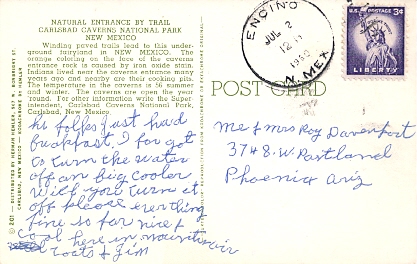 NATURAL ENTRANCE BY TRAIL
CARLSBAD CAVERNS NATIONAL PARK
NEW MEXICO
Winding paved trails lead to this under-
ground fairyland in NEW MEXICO. The
orange coloring on the face of the caverns
entrance rock is caused by iron oxide stain.
Indians lived near the caverns entrance many
years ago and nearby are their cooking pits.
The temperature in the caverns is 56 summer
and winter. The caverns are open the year
'round. For other information write the Super-
intendent, Carlsbad Caverns National Park,
Carlsbad, New Mexico.
Hi folks just had
breakfast. I forgot
to turn the water
off on big cooler
will you turn it
off please everthing
fine so far nice &
cool here in mountain air
& Jim
POST CARD
ENCINO
JUL 2
N. MEX
U.S. POSTAGE 3¢
LIBERTY
Mr & Mrs Roy Davenport
3748. W. Portland
Phoenix Ariz